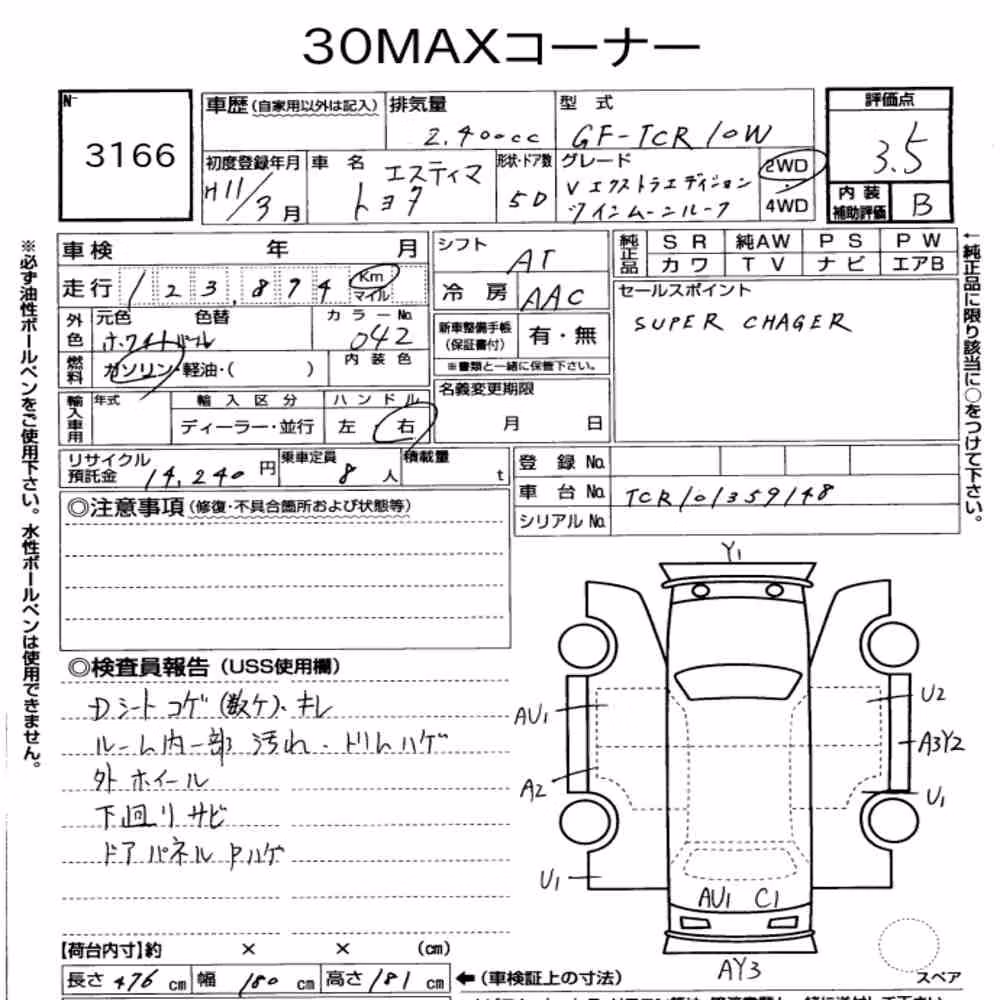 30MAXコーナー
No
3166
車歴(自家用以外は記入)
排気量
2.400cc
型 式
GF-TCR10W
評価点
3.5
内装
補助評価
B
初度登録年月
H11/3月
車 名
エスティマ
トヨタ
形状・ドア数
5D
グレード
V エクストラエディション
ツインムーンルーフ
2WD
4WD
車検 年 月
走行 123,894 Km
マイル
外色
元色 色替
ホワイトパール
カラーNo.
042
燃料
ガソリン・軽油・( )
内装色
輸入車用
年式
輸入区分
ディーラー・並行
ハンドル
左・右
シフト
AT
冷房
AAC
新車整備手帳
(保証書付)
有・無
※書類と一緒に保管下さい。
名義変更期限
月 日
純正品
SR 純AW PS PW
カワ TV ナビ エアB
セールスポイント
SUPER CHAGER
リサイクル
預託金
14,240円
乗車定員
8人
積載量
t
登録No.
車台No.
TCR101359148
シリアルNo.
※必ず油性ボールペンをご使用下さい。水性ボールペンは使用できません。
←純正品に限り該当に○をつけて下さい。
◎注意事項(修復・不具合箇所および状態等)
◎検査員報告(USS使用欄)
Dシートコゲ(数ケ)、キレ
ルーム内一部汚れ・ドリムハゲ
外ホイール
下廻りサビ
ドアパネルPハゲ
Y1
AU1
A2
U1
U2
A3Y2
U1
AU1 C1
AY3
スペア
【荷台内寸】約 × × (cm)
長さ 476 cm 幅 180 cm 高さ 181 cm ←(車検証上の寸法)